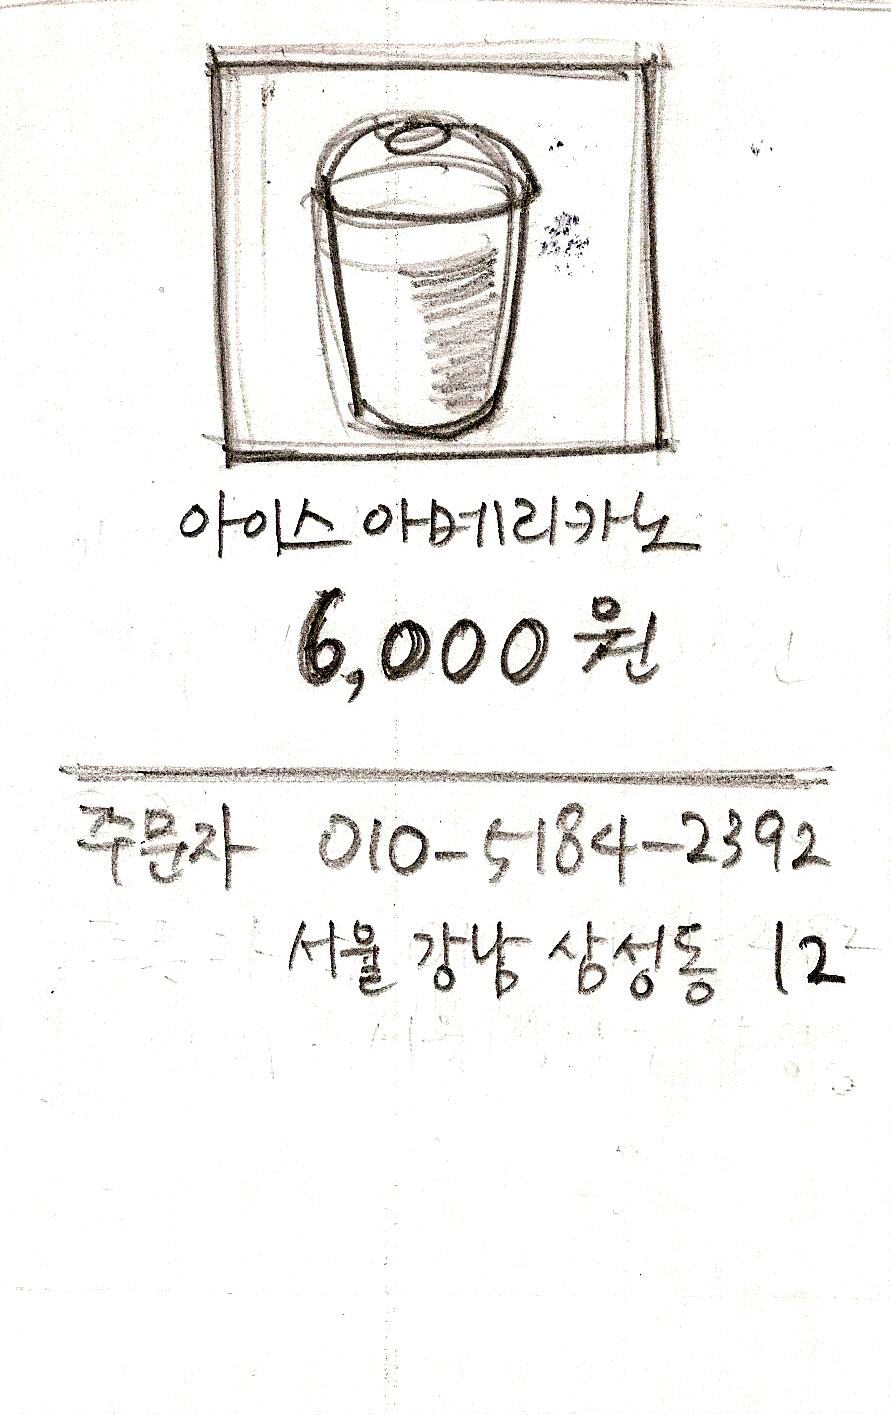 아이스 아메리카노
6,000원
주문자 010-5184-2392
서울 강남 삼성동 12